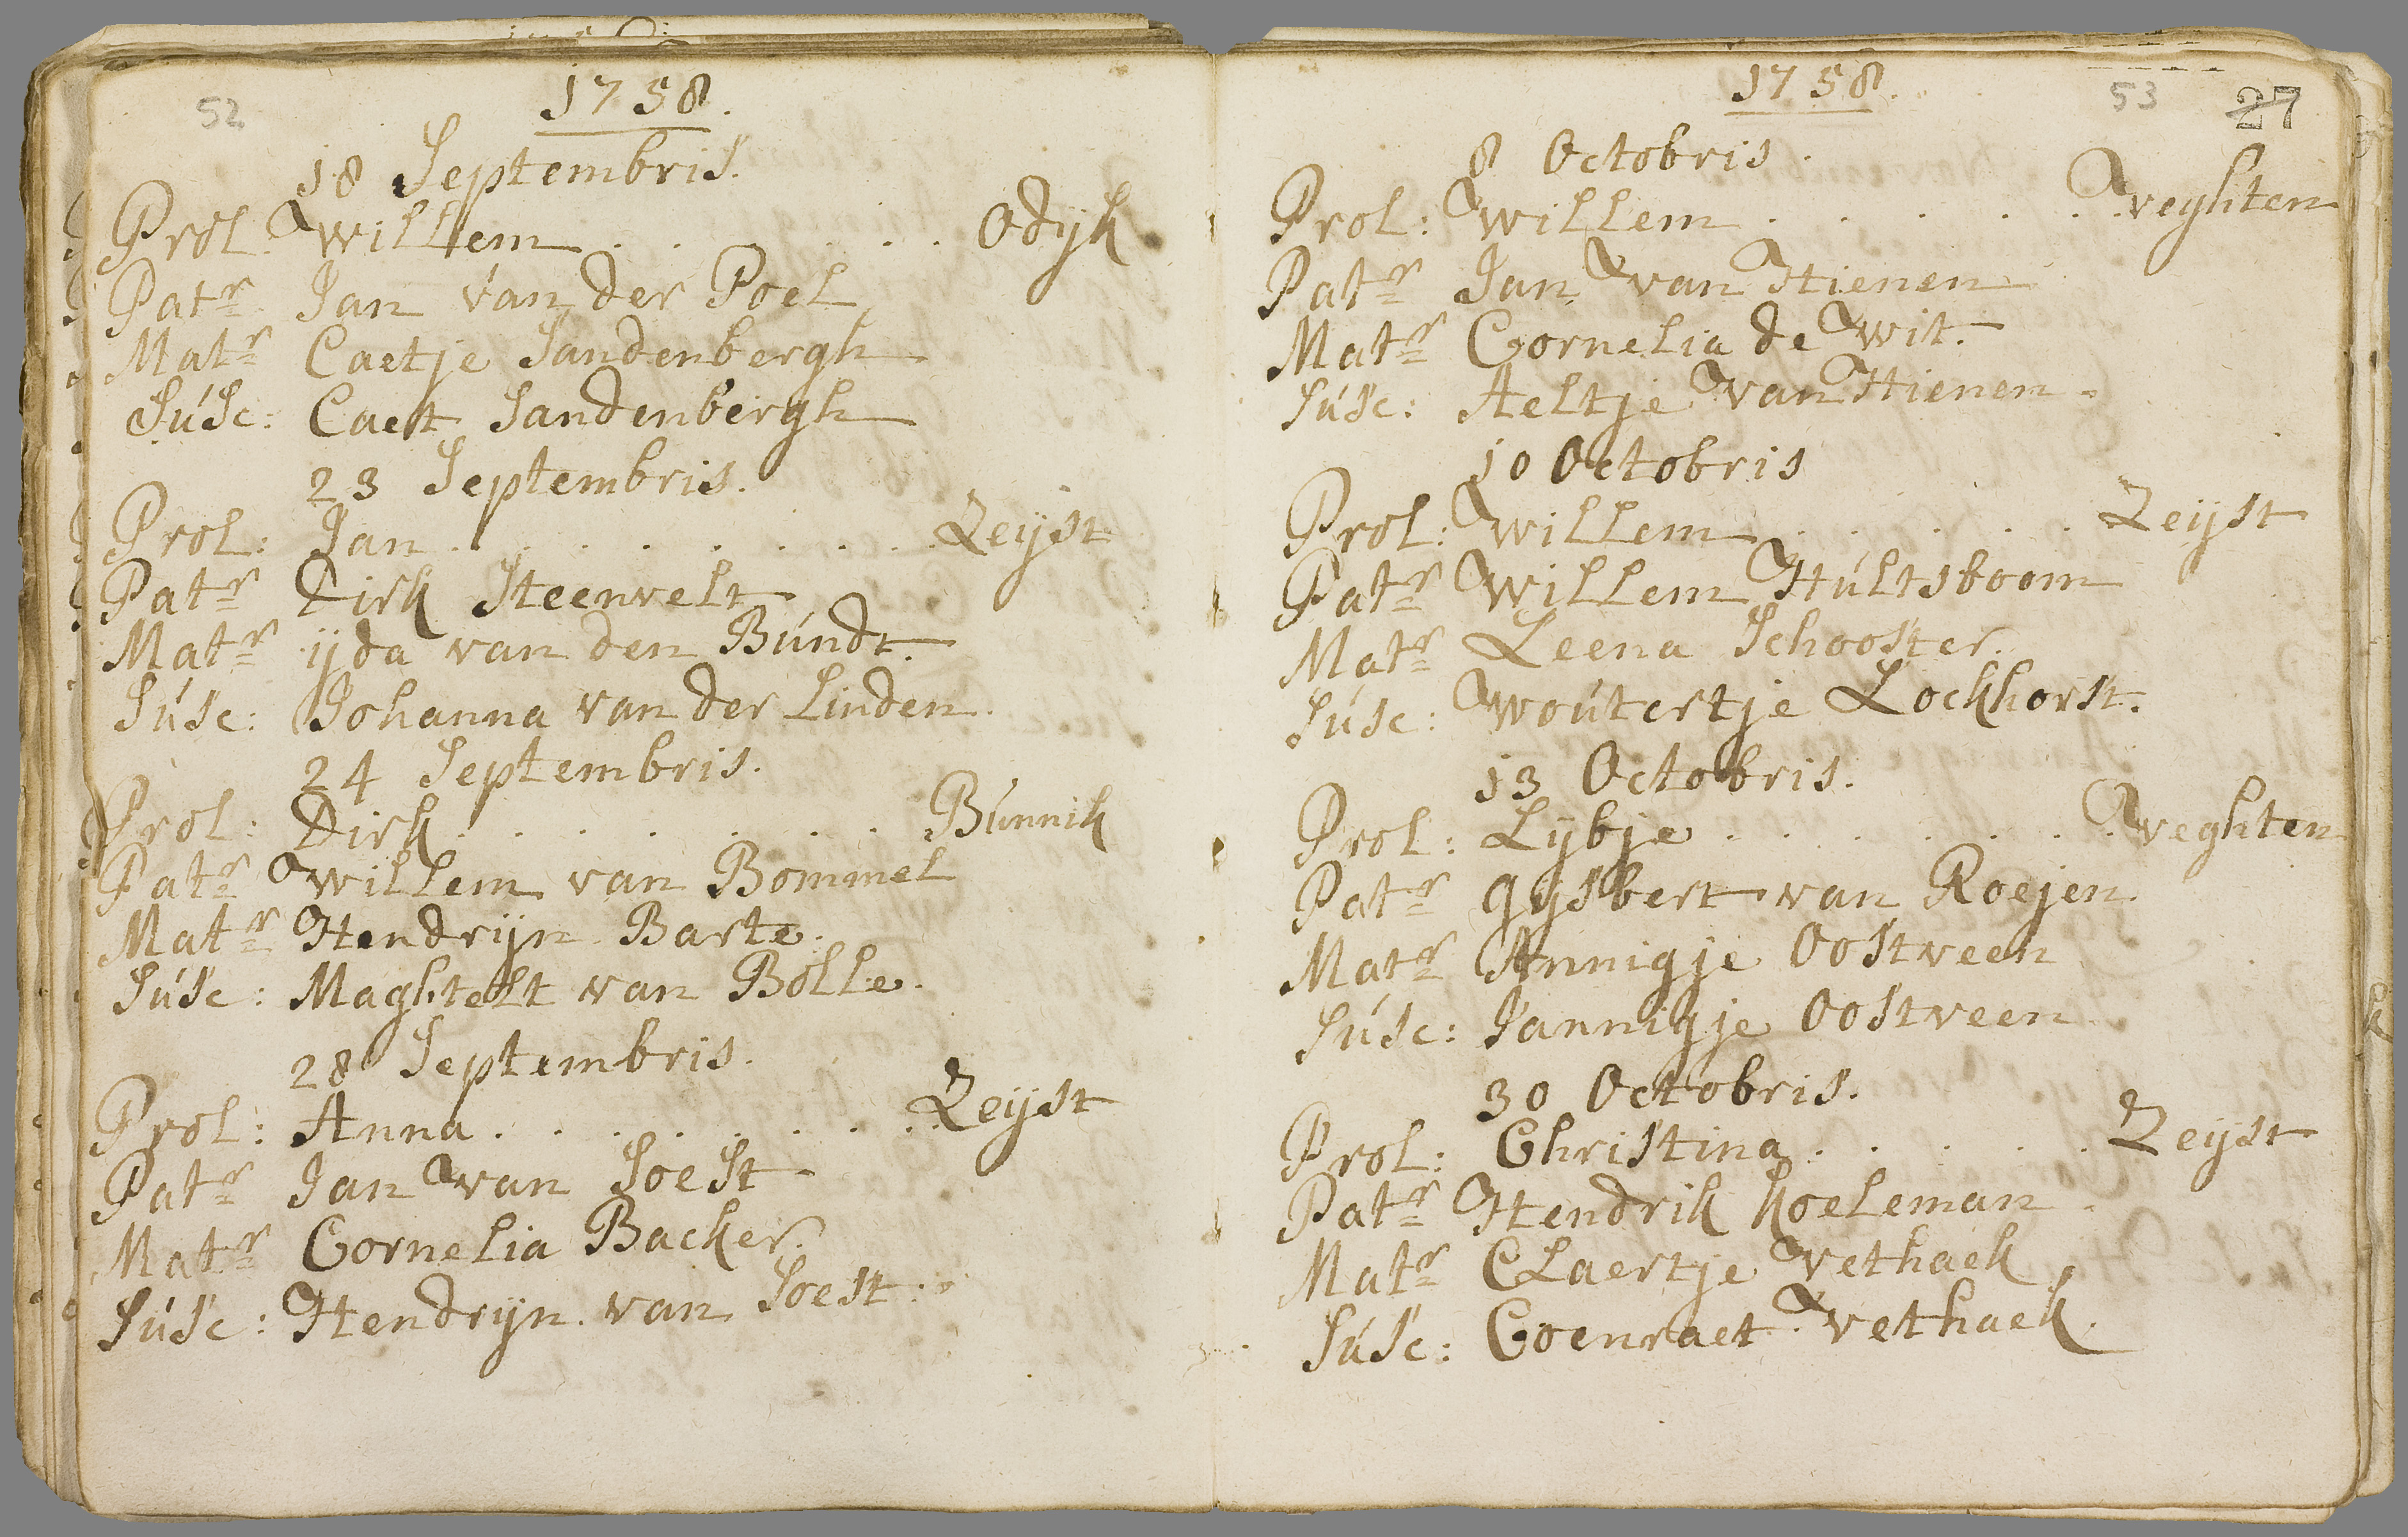 52
1758.
18 Septembris.
Prol. Willem . . . . . . Odijk
Patr Jan van der Poel
Matr Caetje Sandenbergh
Súsc: Caet Sandenbergh
23 Septembris.
Prol: Jan . . . . . . . . . Zeijst
Patr Dirk Steenvelt
Matr ijda van den Búndt.
Súsc: Johanna van der Linden.
24 Septembris.
Prol: Dirk . . . . . . . Búnnik
Patr Willem van Bommel
Matr Hendrijn Barte.
Súsc: Maghtelt van Bolle.
28 Septembris.
Prol: Anna . . . . . . . . Zeijst
Patr Jan van Soest
Matr Cornelia Backer.
Súsc: Hendrijn van Soest.
1758.
53
27
8 Octobris.
Prol: Willem . . . . . . . Veghten
Patr Jan van Hienen
Matr Cornelia de Wit.
Súsc: Aeltje van Hienen.
10 Octobris
Prol: Willem . . . . . Zeijst
Patr Willem Húltsboom
Matr Leena Schooster.
Súsc: Woútertje Lockhorst.
13 Octobris.
Prol: Lijbje . . . . . . . Veghten
Patr Gijsbert van Roejen.
Matr Annigje Oostveen
Súsc: Jannigje Oostveen
30 Octobris.
Prol: Christina . . . . . Zeijst
Patr Hendrik Koeleman.
Matr Claertje Vethaek
Súsc: Coenraet Vethaek.